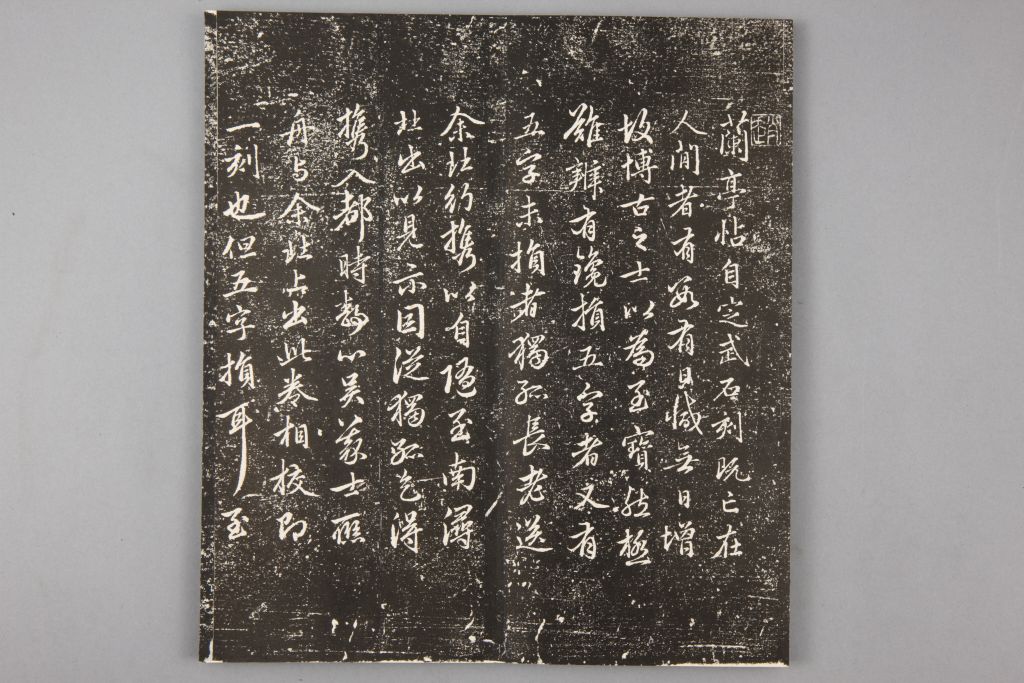 蘭亭帖自定武石刻既亡在
人間者有數有日減無日增
故博古之士以為至寶然極
難辨有鑱損五字者又有
五字未損者獨孤長老送
余北行攜以自隨至南潯
北出以見示因從獨孤乞得
攜入都時與吳森士同
舟与余北上出此卷相校即
一刻也但五字損耳至